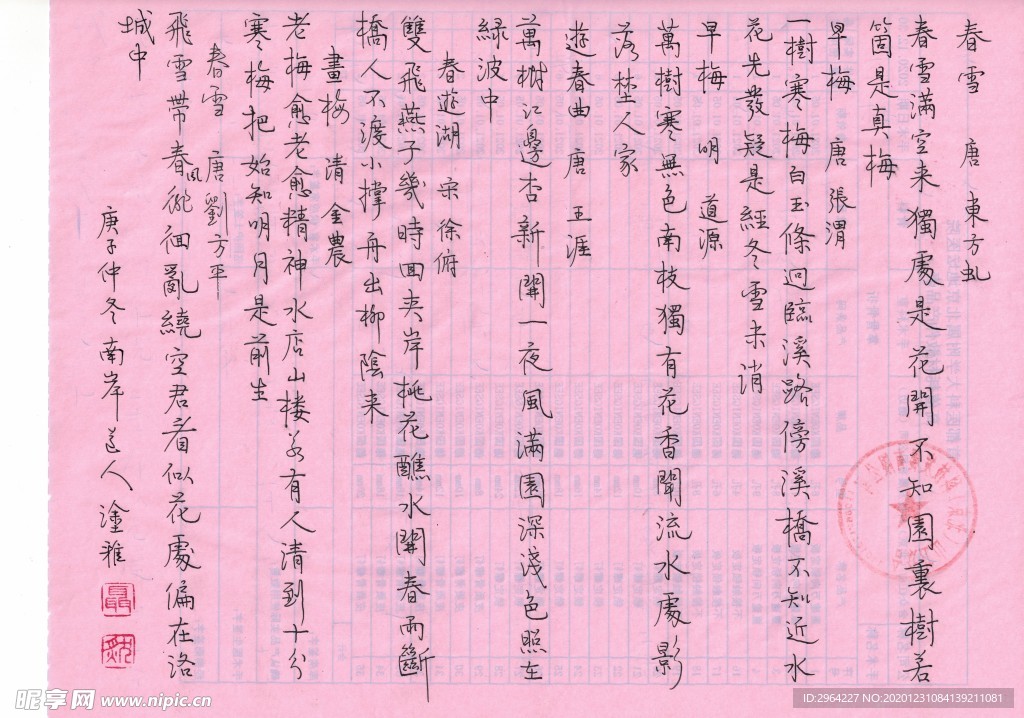 春雪 唐 東方虬
春雪滿空来獨處是花開不知園裏樹若
箇是真梅
早梅 唐 張渭
一樹寒梅白玉條迥臨溪路傍溪橋不知近水
花先發疑是經冬雪未消
早梅 明 道源
萬樹寒無色南枝獨有花香聞流水處影
落埜人家
遊春曲 唐 王涯
萬樹江邊杏新開一夜風滿園深淺色照在
緑波中
春遊湖 宋 徐俯
雙飛燕子幾時回夹岸桃花蘸水開春雨斷
橋人不渡小撑舟出柳陰来
畫梅 清 金農
老梅愈老愈精神水店山楼若有人清到十分
寒梅把始知明月是前生
春雪 唐 劉方平
飛雪带春風徘徊亂繞空君看似花處偏在洛
城中
庚子仲冬南岸 人塗雅
昵享网 www.nipic.cn
ID:2964227 NO:20201231084139211081